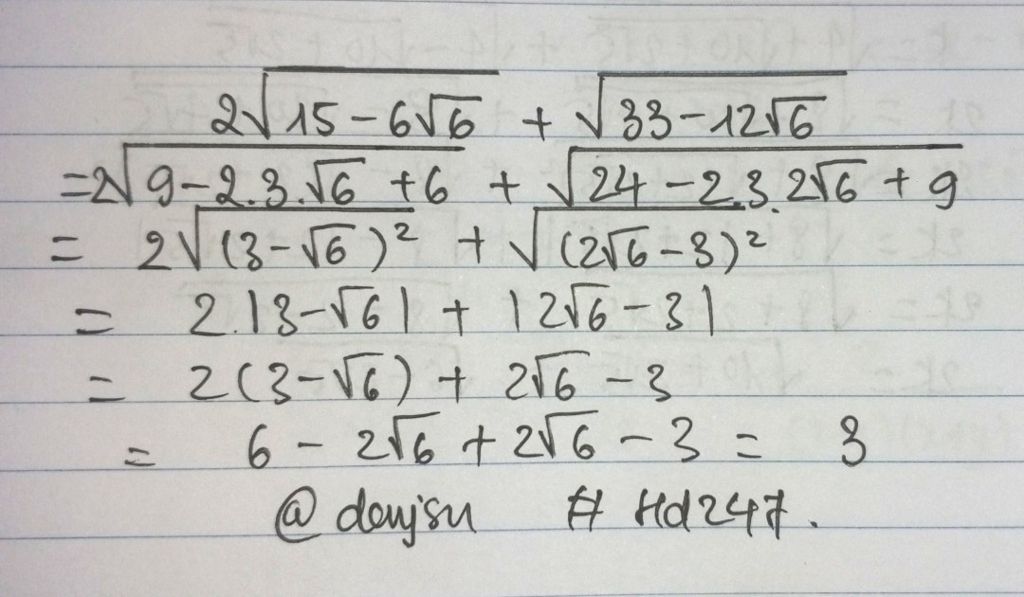 2√(15-6√6) + √(33-12√6)
=2√(9-2.3.√6+6) + √(24-2.3.2√6+9)
= 2√((3-√6)²) + √((2√6-3)²)
= 2.|3-√6| + |2√6-3|
= 2(3-√6) + 2√6-3
= 6-2√6+2√6-3 = 3
@denjsu # Hd247.